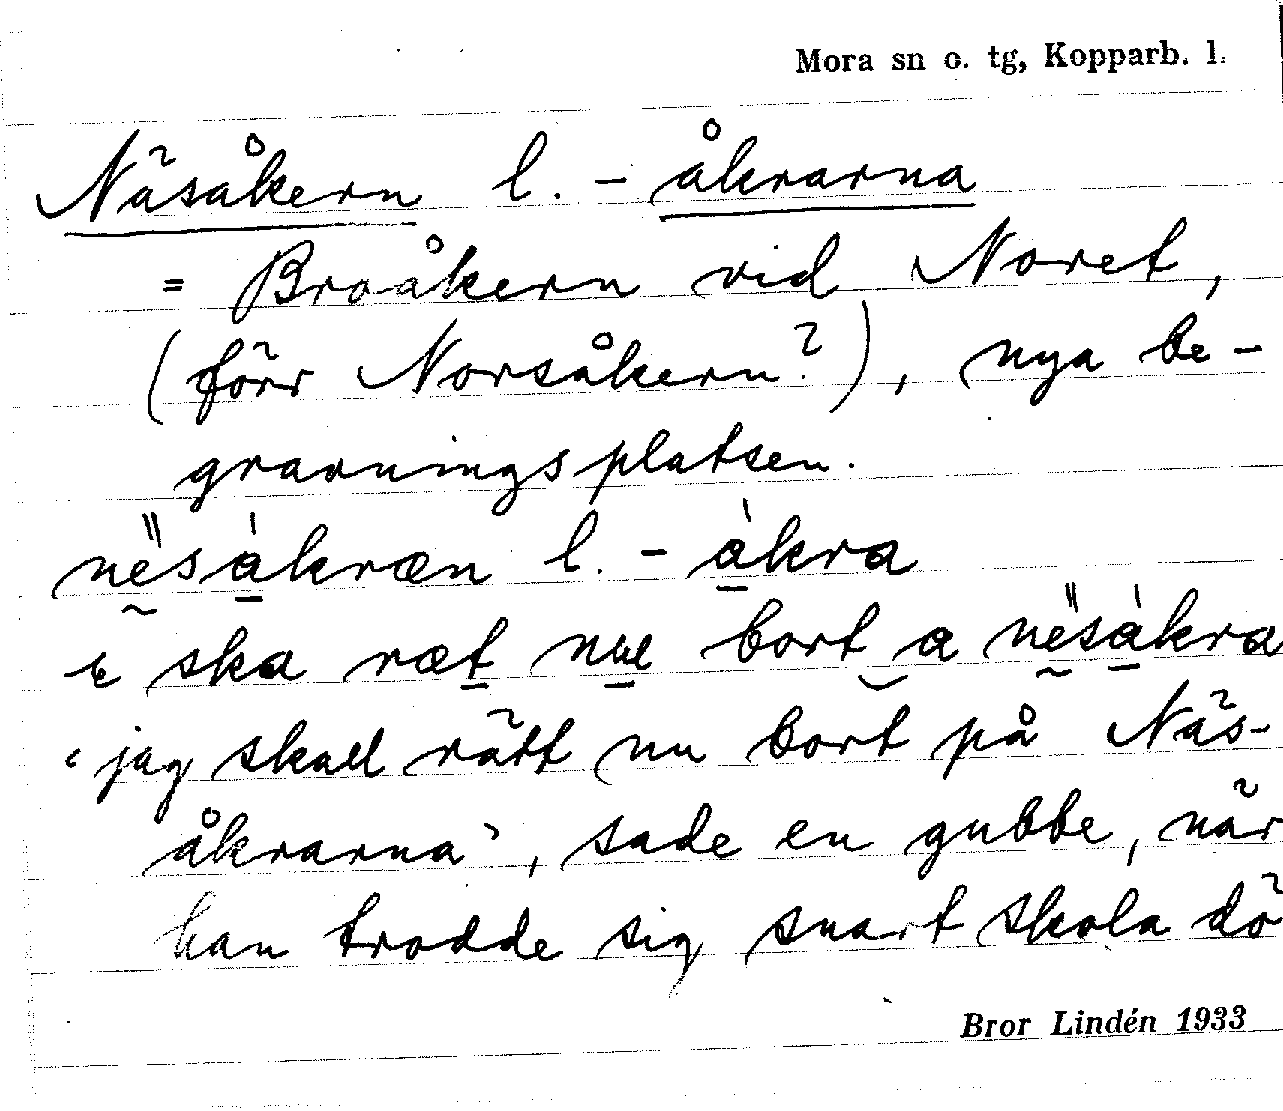 Mora sn o. tg, Kopparb. l.
Näsåkern l. -åkrarna
= Broåkern vid Noret,
(förr Norsåkern?), nya be-
gravningsplatsen.
nësàkræn l. -àkra
ska ræt bort a nësàkra
‘jag skall rätt nu bort på Näs-
åkrarna’, sade en gubbe, när
han trodde sig snart skola dö
Bror Lindén 1933